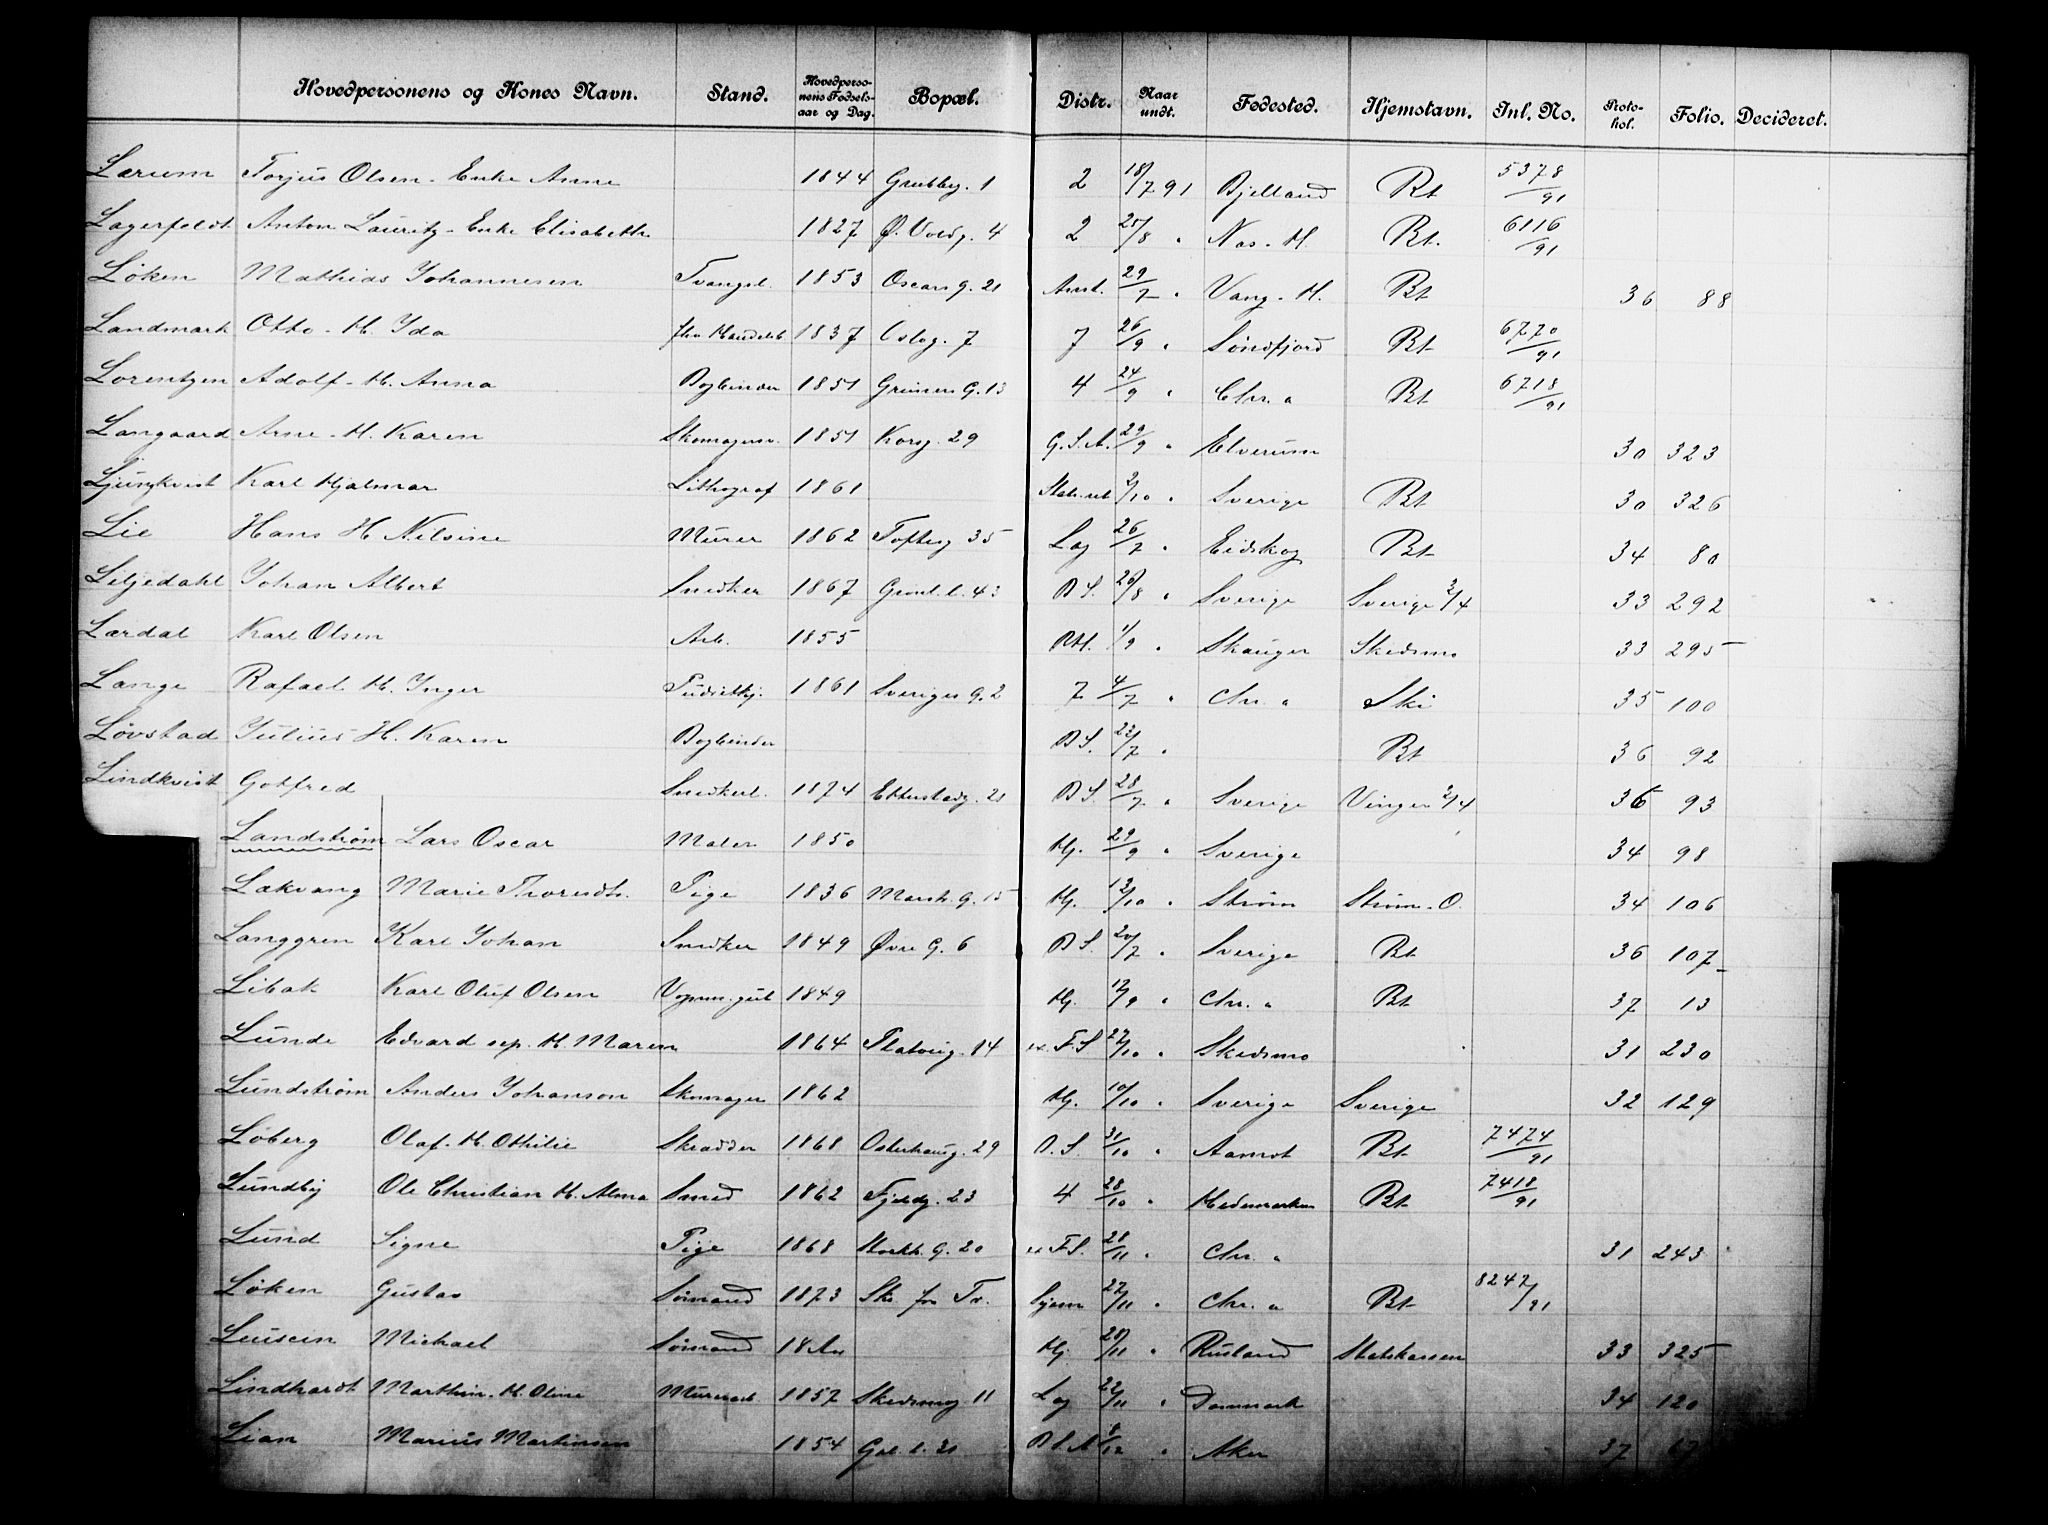 Hovedpersonens og Kones Navn. Stand. Hovedpersonens Fødselsaar og Dag. Bopæl. Distr. Naar undt. Fødested. Hjemstavn. Inl. No. Protokol. Folio. Decideret.
Lærum Torjus Olsen - Enke Anne 1844 Grubbeg. 1 2 18/7 91 Bjelland Bt 5378/91
Lagerfeldt Anton Lauritz - Enke Elisabeth 1827 Ø. Voldg. 4 2 25/8 " Næs. H. Bt. 6116/91
Løken Mathias Johannesen Tvangsl. 1853 Oscars g. 21 29/7 " Vang. H. Bt 36 88
Landmark Otto - H. Ida 1837 Oslog. 7 7 26/9 " Søndfjord Bt 6770/91
Lorentzen Adolf - H. Anna Bogbinder 1851 Grüners G. 13 4 24/9 " Chr. a Bt 6718/91
Langaard Arne - H. Karen Skomagersv. 1851 Korsg. 29 G.S.A. 29/9 " Elverum 30 323
Ljungkvist Karl Hjalmar Lithograf 1861 2/10 " Sverige Bt 30 326
Lie Hans H. Nilsine Murer 1862 Toftesg 35 Lag 26/7 " Eidskog Bt 34 80
Liljedahl Johan Albert Snedker 1867 Grønl. l. 43 B S. 26/8 " Sverige Sverige 2/4 33 292
Lærdal Karl Olsen Arb. 1855 1/9 " Skauger Skedsmo 33 295
Lange Rafael H. Inger 1861 Sveriges G. 2 7 4/7 " Chr. a Ski 35 100
Løvstad Julius H. Karen Bogbinder B S. 22/7 " Bt 36 92
Lindkvist Gotfred Snedkerl. 1874 Etterstadg. 21 B S. 28/7 " Sverige Vinger 2/4 36 93
Landstrøm Lars Oscar Maler 1850 Hj. 29/9 " Sverige 34 98
Lakvang Marie Thorendtr. Pige 1836 Mark. G. 15 Hj. 12/10 " Strøm Strøm. O. 34 106
Langgren Karl Johan Snedker 1849 Øvre G. 6 B S. 20/7 " Sverige Bt 36 107
Libak Karl Oluf Olsen 1849 Hj. 12/9 " Chr. a Bt 37 13
Lunde Edvard sep. H. Maren 1864 Platoug. 14 ex. F.S 27/10 " Skedsmo 31 230
Lundstrøm Anders Johanson Skomager 1862 Hj. 10/10 " Sverige Sverige 32 129
Løberg Olaf - H. Othilie Skrædder 1868 Osterhausg. 29 O. S. 31/10 " Aamot Bt 7474/91
Lundby Ole Christian H. Alma Smed 1862 Fjeldg. 23 4 28/10 " Hedemarken Bt 7418/91
Lund Signe Pige 1868 Stockh. G. 20 ex F.S. 28/11 " Chr. a 31 243
Løken Gustav Sømand 1873 Ske. for Tv. 27/11 " Chr. a Bt 8247/91
Michael Sømand Hj 28/11 " Rusland Statskassen 33 325
Lindhardt Marthin - H. Oline Murerarb. 1857 Skedsmog 11 Lag 22/11 " Danmark 34 120
Lian Marius Martinsen 1854 8/12 " Aker 37 67